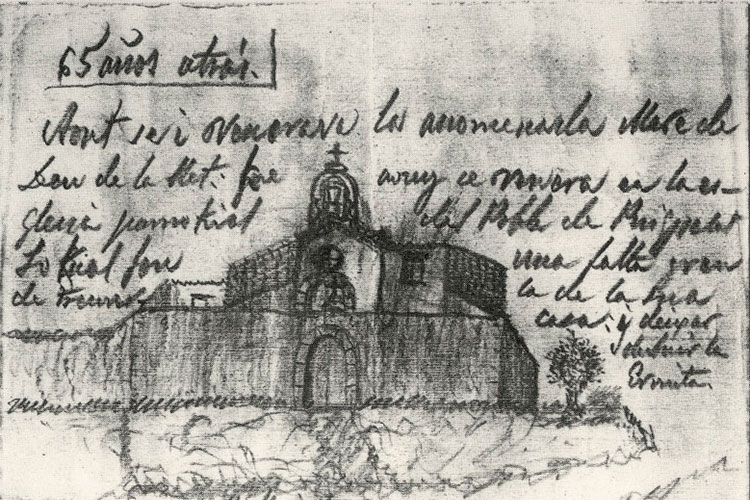 65 años atrás.
Aont se i venerave la anomenada Mare de
Deu de la Llet: fou avuy se venera en la es-
glesia parroquial del Poble de Puigpelat
Lo qual fou una falta gran
de treurer la de la seva
casa: y deixar
destruir la
Ermita.